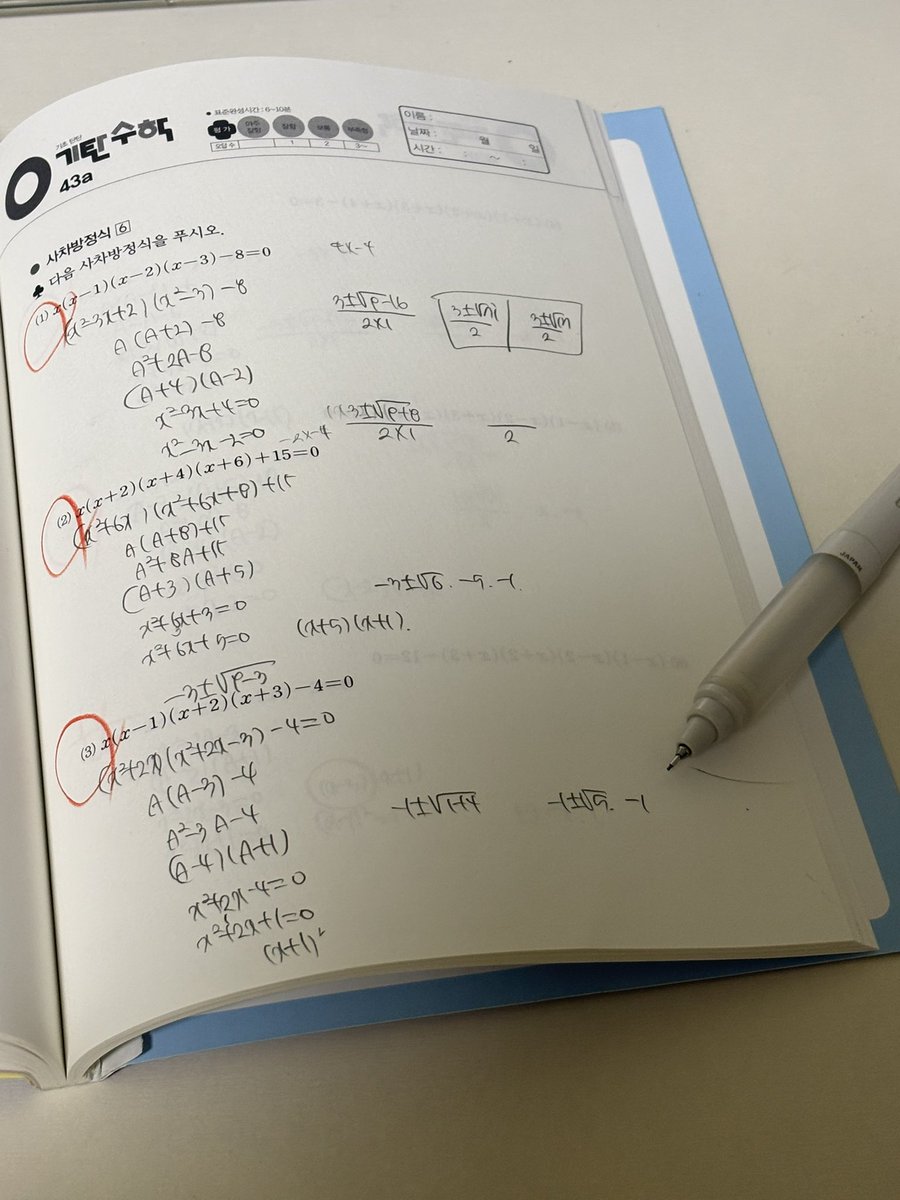 기초 탄탄
기탄수학
43a
• 표준완성시간 : 6~10분
평가 아주 잘함 잘함 보통 부족함
오답 수 1 2 3~
이름 :
날짜 : 월 일
시간 : : ~ :
● 사차방정식 6
♣ 다음 사차방정식을 푸시오.
(1) x(x-1)(x-2)(x-3)-8=0
(x²-3x+2)(x²-3)-8
A(A+2)-8
A²+2A-8
(A+4)(A-2)
x²-3x+4=0
x²-3x-2=0
3±√9-16
2×1
3±√7i
2
3±√17
2
3±√9+8
2×1
2
(2) x(x+2)(x+4)(x+6)+15=0
(x²+6x)(x²+6x+8)+15
A(A+8)+15
A²+8A+15
(A+3)(A+5)
x²+6x+3=0
x²+6x+5=0 (x+5)(x+1).
-3±√6. -5. -1.
-3±√9-3
(3) x(x-1)(x+2)(x+3)-4=0
(x²+2x)(x²+2x-3)-4=0
A(A-3)-4
A²-3A-4
(A-4)(A+1)
x²+2x-4=0
x²+2x+1=0
(x+1)²
-1±√1+4 -1±√5. -1
JAPAN